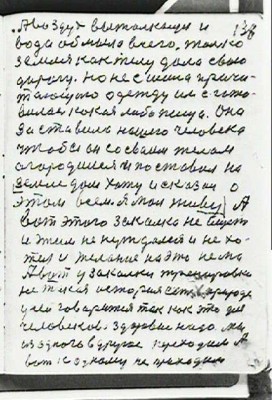 Авоздух выталкаща и 136
вода обмыла всего. только
земля как телу дала свою
дорогу. Но не сшила
одежду или сготовилась
какая либо пища. Она
заставила нашего человека
чтобы он со своим телом
огородился и поставил на
земле дом хату и сказал о
этом всем. я мол живу. А
вот этого закалка не ищет
и этим не нуждается и не хо-
тел и желание на это не ма
А вот у закалки тренировки
не такая история есть. в природе
у ней говорится так как это для
человеков. здоровье надо. мы
из одного в другое приходим А
вот к одному не приходим